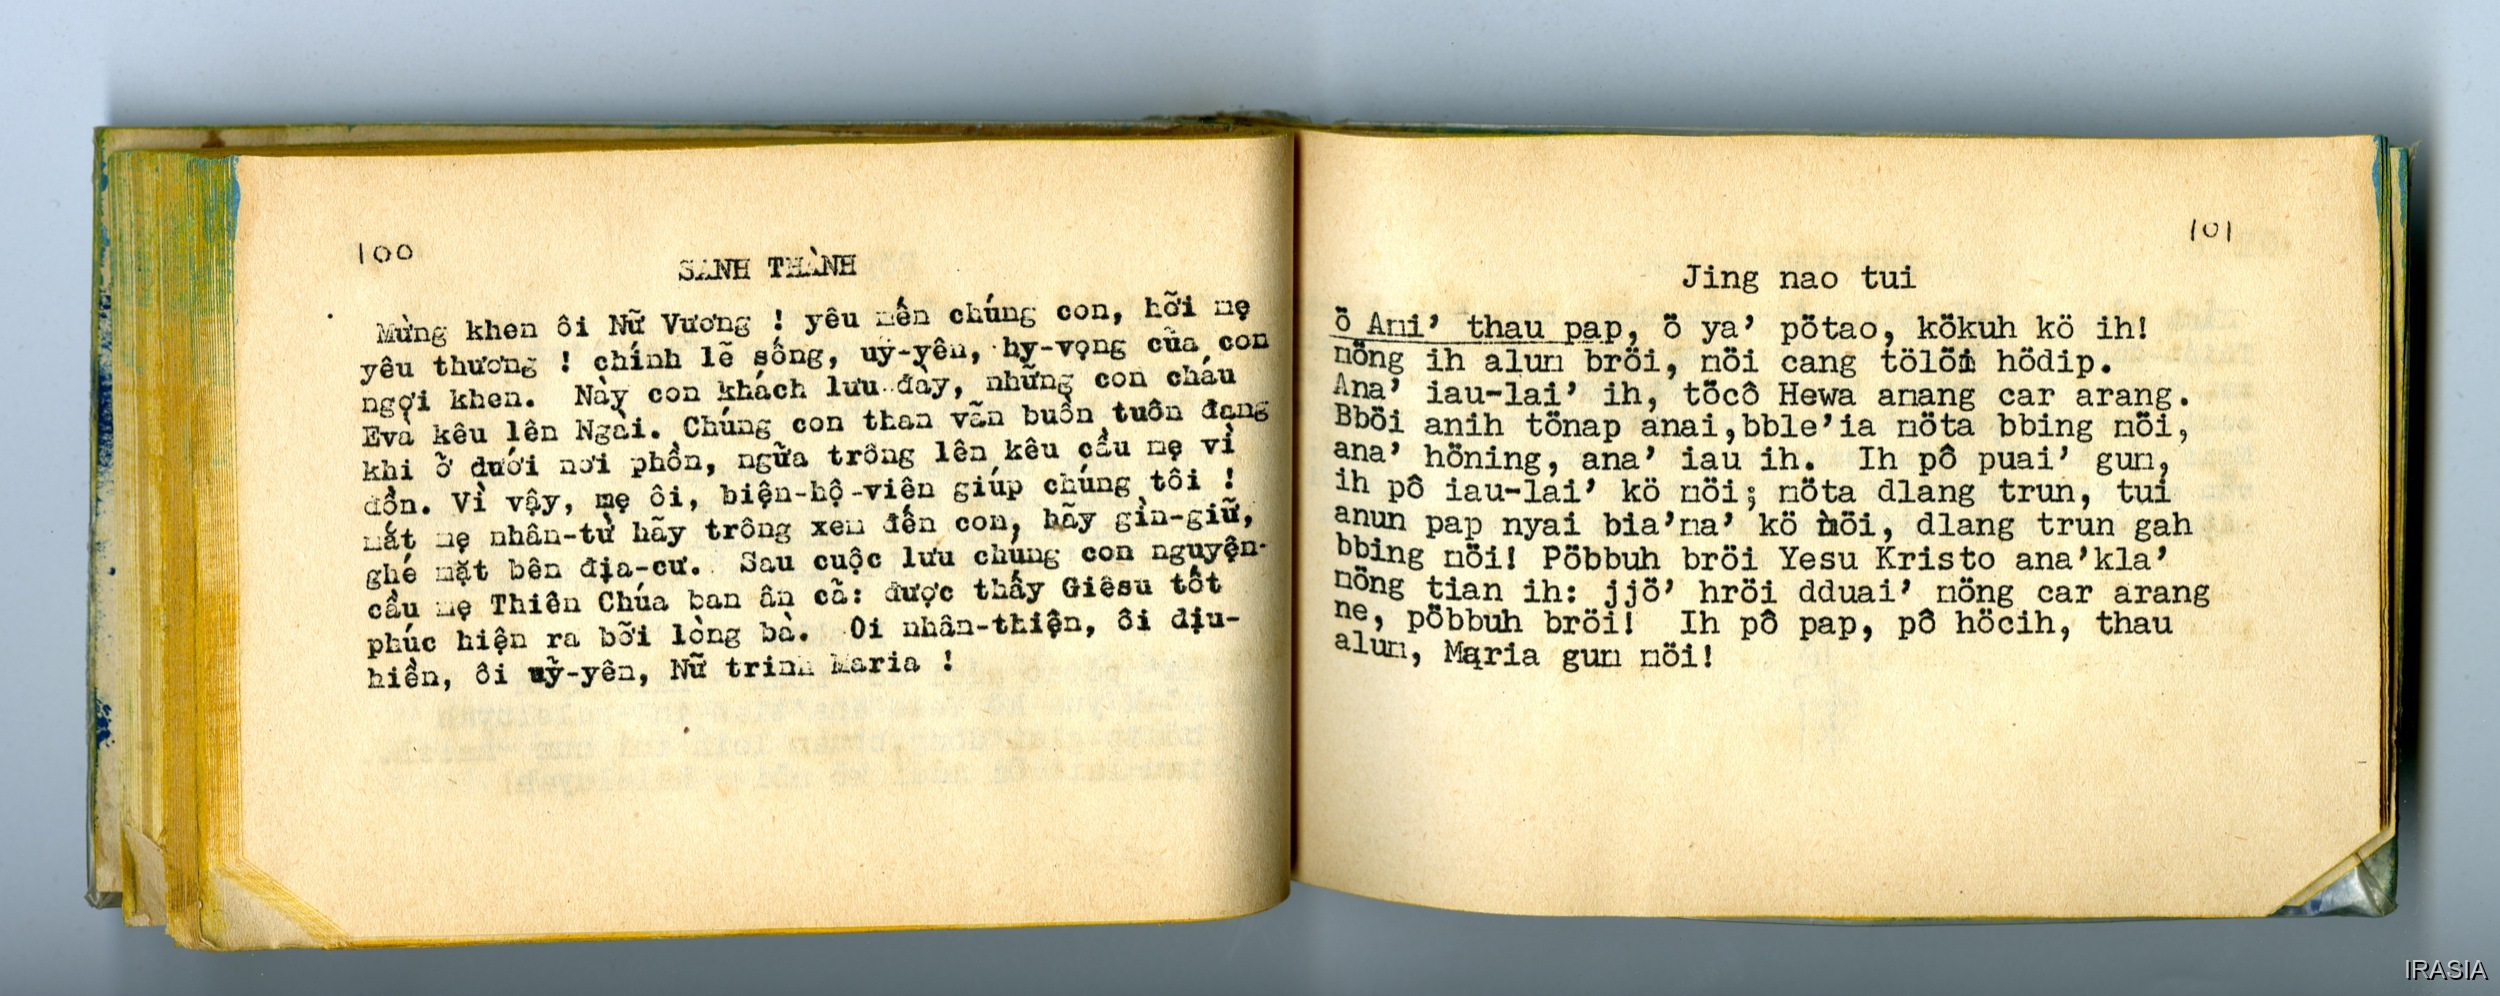 100
SANH THÀNH
Mừng khen ôi Nữ Vương ! yêu mến chúng con, hỡi mẹ
yêu thương ! chính lẽ sống, uỷ-yên, hy-vọng của con
ngợi khen. Này con khách lưu đày, những con cháu
Evà kêu lên Ngài. Chúng con than vãn buồn tuôn đang
khi ở dưới nơi phồn, ngửa trông lên kêu cầu mẹ vì
đồn. Vì vậy, mẹ ôi, biện-hộ-viên giúp chúng tôi !
mắt mẹ nhân-từ hãy trông xem đến con, hãy gìn-giữ,
ghé mặt bên địa-cư. Sau cuộc lưu chúng con nguyện-
cầu mẹ Thiên Chúa ban ân cả: được thấy Giêsu tốt
phúc hiện ra bởi lòng bà. Oi nhân-thiện, ôi dịu-
hiền, ôi uỷ-yên, Nữ trinh Maria !
101
Jing nao tui
ö̆ Ani’ thau pap, ö̆ ya’ pötao, kökuh kö ih!
nöng ih alum bröi, möi cang tölöi hödip.
Ana’ iau-lai’ ih, töcô Hewa amang car arang.
Bböi anih tönap anai,bble’ia möta bbing möi,
ana’ höning, ana’ iau ih. Ih pô puai’ gum,
ih pô iau-lai’ kö möi; möta dlang trun, tui
anun pap nyai bia’ma’ kö möi, dlang trun gah
bbing möi! Pöbbuh bröi Yesu Kristo ana’kla’
nöng tian ih: jjö’ hröi dduai’ nöng car arang
ne, pöbbuh bröi! Ih pô pap, pô höcih, thau
alum, Maria gum möi!
IRASIA